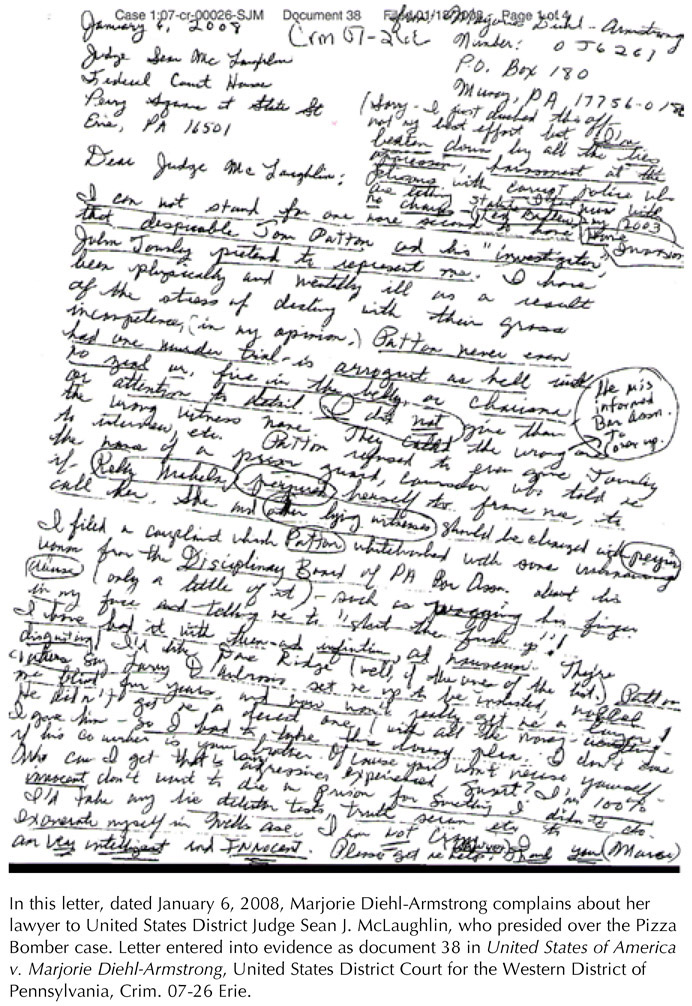 Case 1:07-cr-00026-SJM Document 38 Filed 01/18/2008 Page 1 of 4
January 6, 2008
Crm 07-26E
Marjorie Diehl-Armstrong
Number: 056261
P.O. Box 180
Muncy, PA 17756-0180
Judge Sean McLaughlin
Federal Court House
Perry Square at State St
Erie, PA 16501
(Sorry - I just dashed this off
not my best effort but I'm
beaten down by all the lies
harassment at the
prisons with corrupt police who
2003
Dear Judge McLaughlin:
I can not stand for one more second to have
that despicable Tom Patton and his "investigator,"
John Townley pretend to represent me. I have
been physically and mentally ill as a result
of the stress of dealing with their gross
incompetence, (in my opinion.) Patton never even
had one murder trial - is arrogant as hell with
no zeal or, fire in the belly or charisma
or attention to detail. I did not give them
the wrong witness name. They called the wrong
to interview, etc. Patton refused to even give Townley
the name of a prison guard, counselor who told
if Kelly perjured herself to frame me, to
call her. She and other lying witnesses should be charged with perjury
He mis
informed
Bar Assn.
to
cover up.
I filed a complaint which Patton whitewashed with some
woman from the Disciplinary Board of PA Bar Assn. about his
abuse (only a little of it) - such as wagging his finger
in my face and telling me to "shut the fuck up"!!
I have had it with them - ad infinitum, ad nauseum. They're
disgusting! I'd like
Larry D'Ambrosio set me up to be arrested, robbed
me blind for years, and now won't really get me a lawyer.
He didn't get me a decent one (with all the money
I gave him - so I had to take this
if his co worker is your brother. Of course you won't recuse yourself-
Who can I get that is very aggressive, experienced I'm 100%
innocent don't want to die in prison for something I didn't do.
I'd take any lie detector tests, truth serum etc to
exonerate myself in Wells case. I am not
am very intelligent and INNOCENT. Please get me help! Thank you (Marge)
In this letter, dated January 6, 2008, Marjorie Diehl-Armstrong complains about her
lawyer to United States District Judge Sean J. McLaughlin, who presided over the Pizza
Bomber case. Letter entered into evidence as document 38 in United States of America
v. Marjorie Diehl-Armstrong, United States District Court for the Western District of
Pennsylvania, Crim. 07-26 Erie.